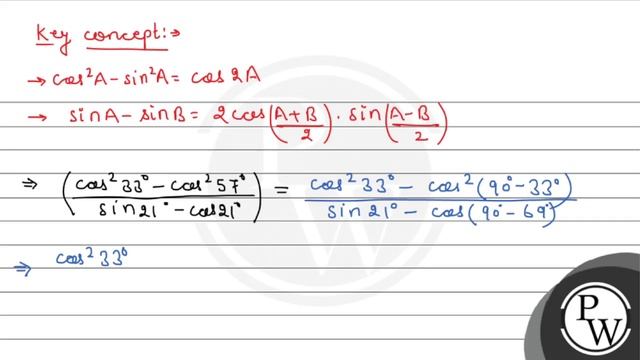 Key concept:→
→ cos²A - sin²A = cos2A
→ sinA - sinB = 2cos(A+B/2) · sin(A-B/2)
⇒ (cos²33° - cos²57° / sin21° - cos21°) = cos²33° - cos²(90° - 33°) / sin21° - cos(90° - 69°)
⇒ cos²33°
PW